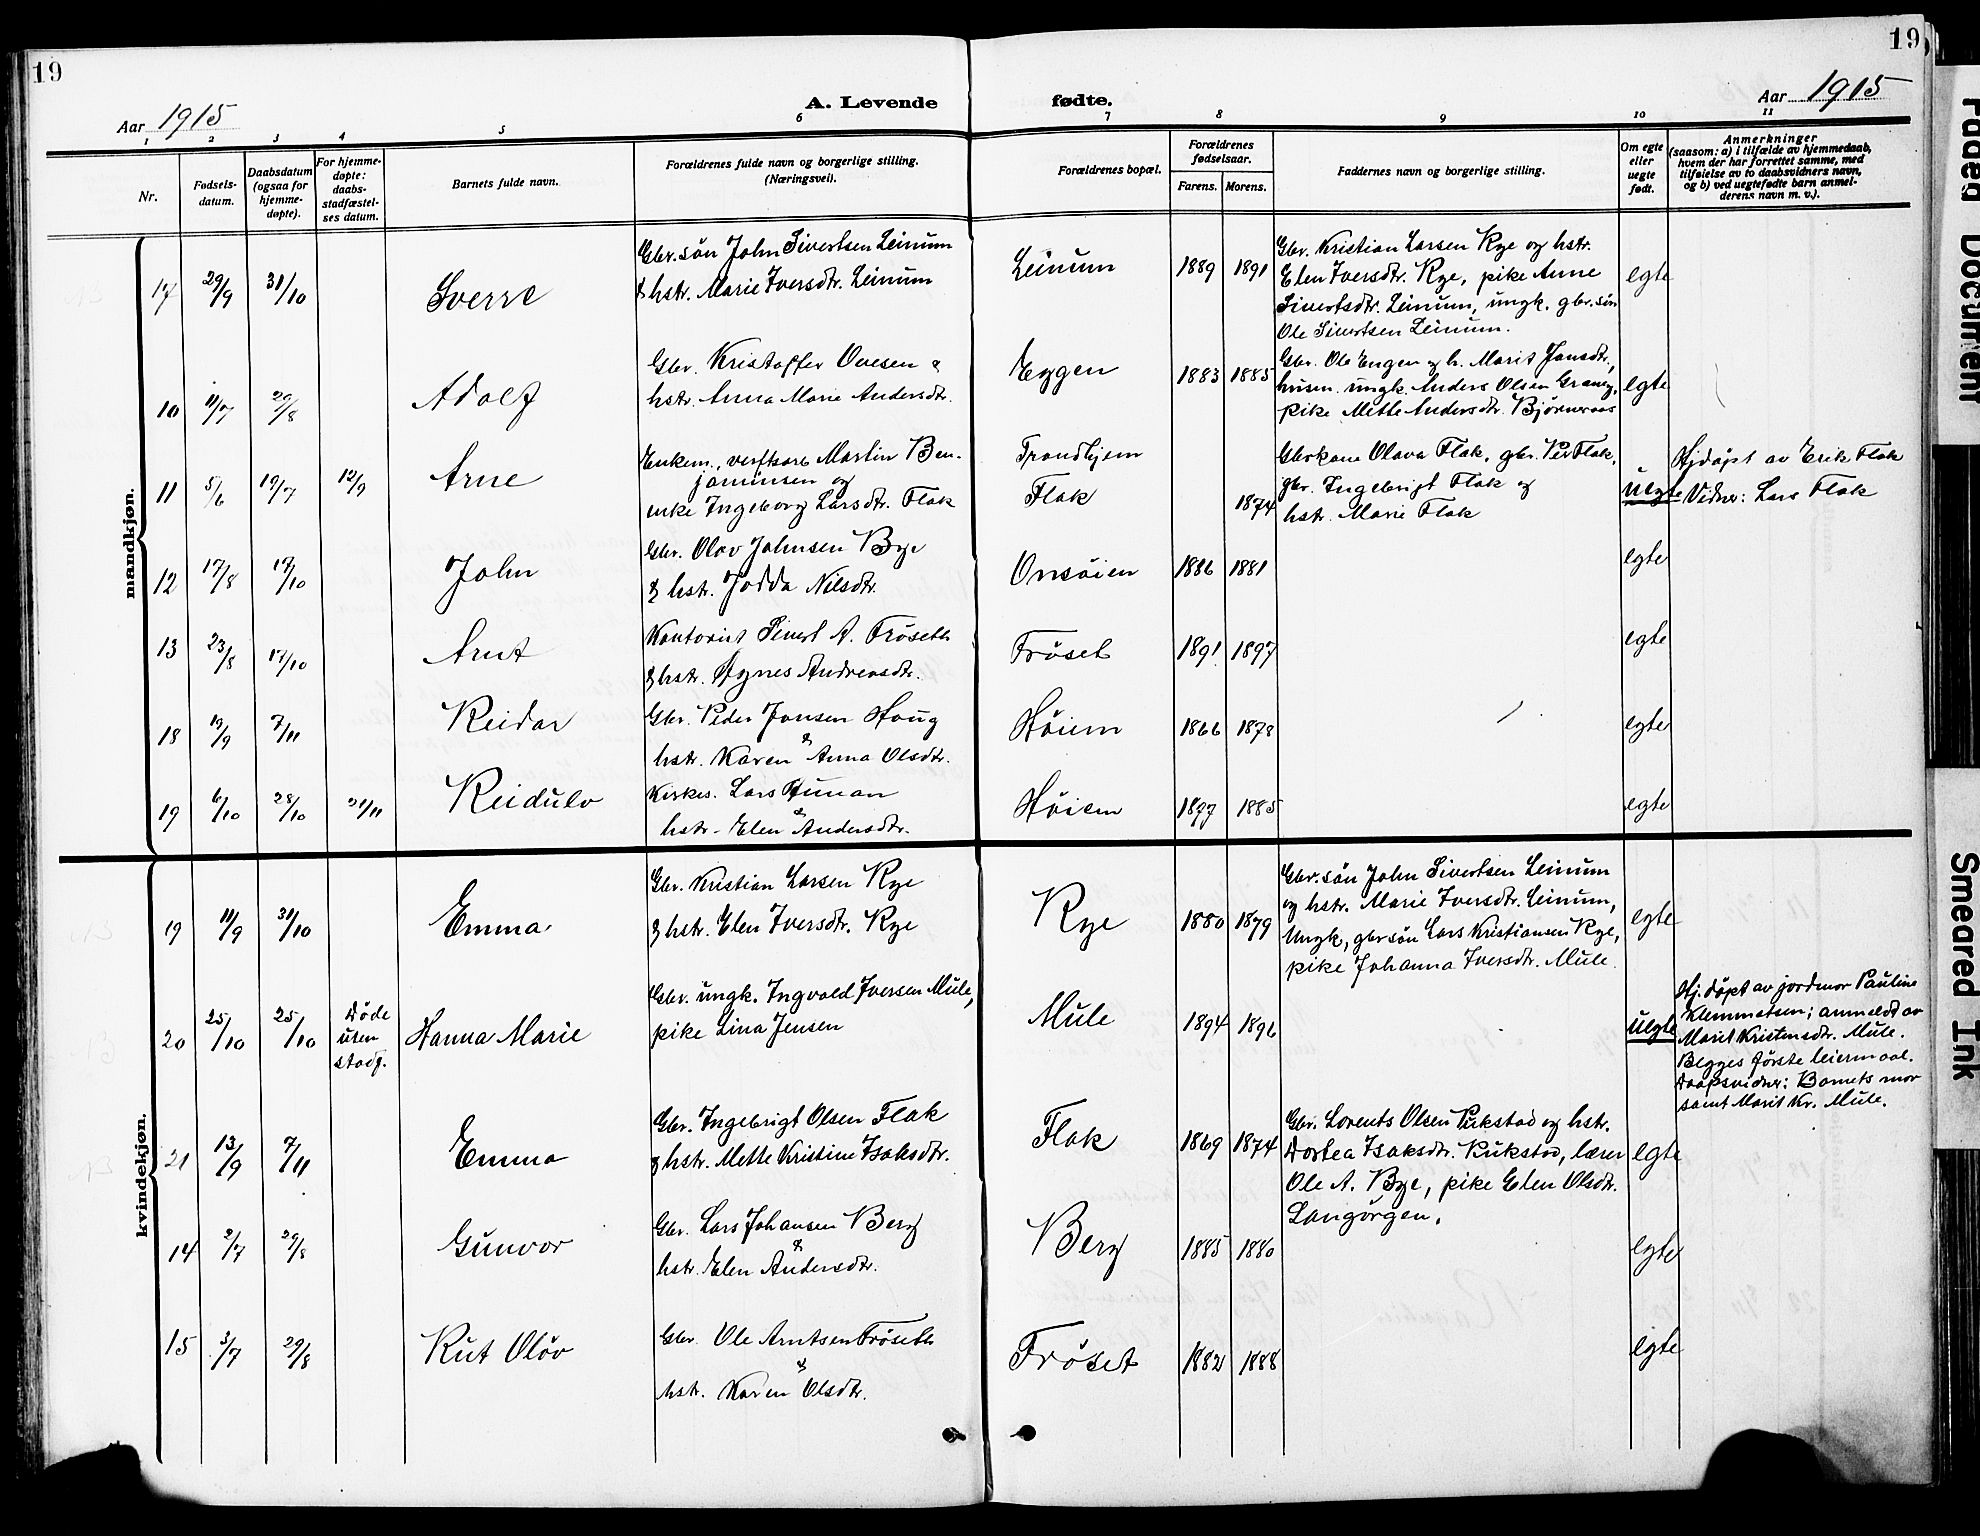 19
19
Aar 1915
A. Levende fødte.
Aar 1915
1 2 3 4 5 6 7 8 9 10 11
Nr.
Fødsels-
datum.
Daabsdatum
(ogsaa for
hjemme-
døpte).
For hjemme-
døpte:
daabs-
stadfæstel-
ses datum.
Barnets fulde navn.
Forældrenes fulde navn og borgerlige stilling.
(Næringsvei).
Forældrenes bopæl.
Forældrenes
fødselsaar.
Farens. Morens.
Faddernes navn og borgerlige stilling.
Om egte
eller
uegte
født.
Anmerkninger
(saasom: a) i tilfælde av hjemmedaab,
hvem der har forrettet samme, med
tilføielse av to daabsvidners navn,
og b) ved uegtefødte barn anmel-
derens navn m. v.).
mandkjøn.
17 29/9 31/10 Sverre
Gbr. søn John Sivertsen Leinum
& hstr. Marie Iversdtr. Leinum
Leinum 1889 1891
Gbr. Kristian Larsen Rye og hstr.
Elen Iversdtr. Rye, pike Anne
Sivertsdtr. Leinum, ungk. gbr. søn
Ole Sivertsen Leinum.
egte
10 11/7 29/8 Adolf
Gbr. Kristoffer Ovesen &
hstr. Anna Marie Andersdtr.
Eggen 1883 1885
Gbr. Ole Engen og h. Marit Jansdtr.,
husm. ungk. Anders Olsen
pike Mette Andersdtr. Bjørneraas
egte
11 5/6 19/7 12/9 Arne
Enkem., Martin Ben-
jaminsen og
enke Ingeborg Larsdtr. Flak
Trondhjem
Flak 1874
Gbrkone Olava Flak, gbr. Per Flak,
gbr. Ingebrigt Flak og
hstr. Marie Flak
uegte
Hjdøpt av Erik Flak
Vidner: Lars Flak
12 17/8 17/10 John
Gbr. Olav Johnsen Bye
& hstr. Jodda Nilsdtr.
Onsøien 1886 1881
egte
13 23/8 17/10 Arnt
Kontorist Sivert A. Frøseth
& hstr. Agnes Andreasdtr.
Frøset 1891 1897
egte
18 19/9 7/11 Reidar
Gbr. Peder Jonsen Haug
&
hstr. Karen Anna Olsdtr.
Høiem 1866 1878
egte
19 6/10 28/10 21/11 Reidulv
Kirkes. Lars Hunan
&
hstr. Elen Andersdtr.
Høiem 1877 1885
egte
kvindekjøn.
19 11/9 31/10 Emma
Gbr. Kristian Larsen Rye
& hstr. Elen Iversdtr. Rye
Rye 1880 1879
Gbr. søn John Sivertsen Leinum
og hstr. Marie Iversdtr. Leinum,
Ungk, gbr søn Lars Kristiansen Rye,
pike Johanna Iversdtr. Mule.
egte
20 25/10 25/10
Døde
uten
stadf.
Hanna Marie
Gbr. ungk. Ingvald Iversen Mule,
pike Lina Jensen
Mule 1894 1896
uegte
Hj. døpt av jordmor Pauline
Klemmetsen; anmeldt av
Marit Kristensdtr. Mule.
Begges første leiermaal.
Daapsvidner: Barnets mor
samt Marit Kr. Mule.
21 13/9 7/11 Emma
Gbr. Ingebrigt Olsen Flak
& hstr. Mette Kristine Isaksdtr.
Flak 1869 1874
Gbr. Lorents Olsen Kukstad og hstr.
Dortea Isaksdtr. Kukstad, lærer
Ole A. Bye, pike Elen Olsdtr.
Langørgen.
egte
14 2/7 29/8 Gunvor
Gbr. Lars Johansen Berg
&
hstr. Elen Andersdtr.
Berg 1885 1880
egte
15 3/7 29/8 Rut Oløv
Gbr. Ole Arntsen Frøseth
&
hstr. Karen Olsdtr.
Frøset 1882 1888
egte
Faded Document
Smeared Ink